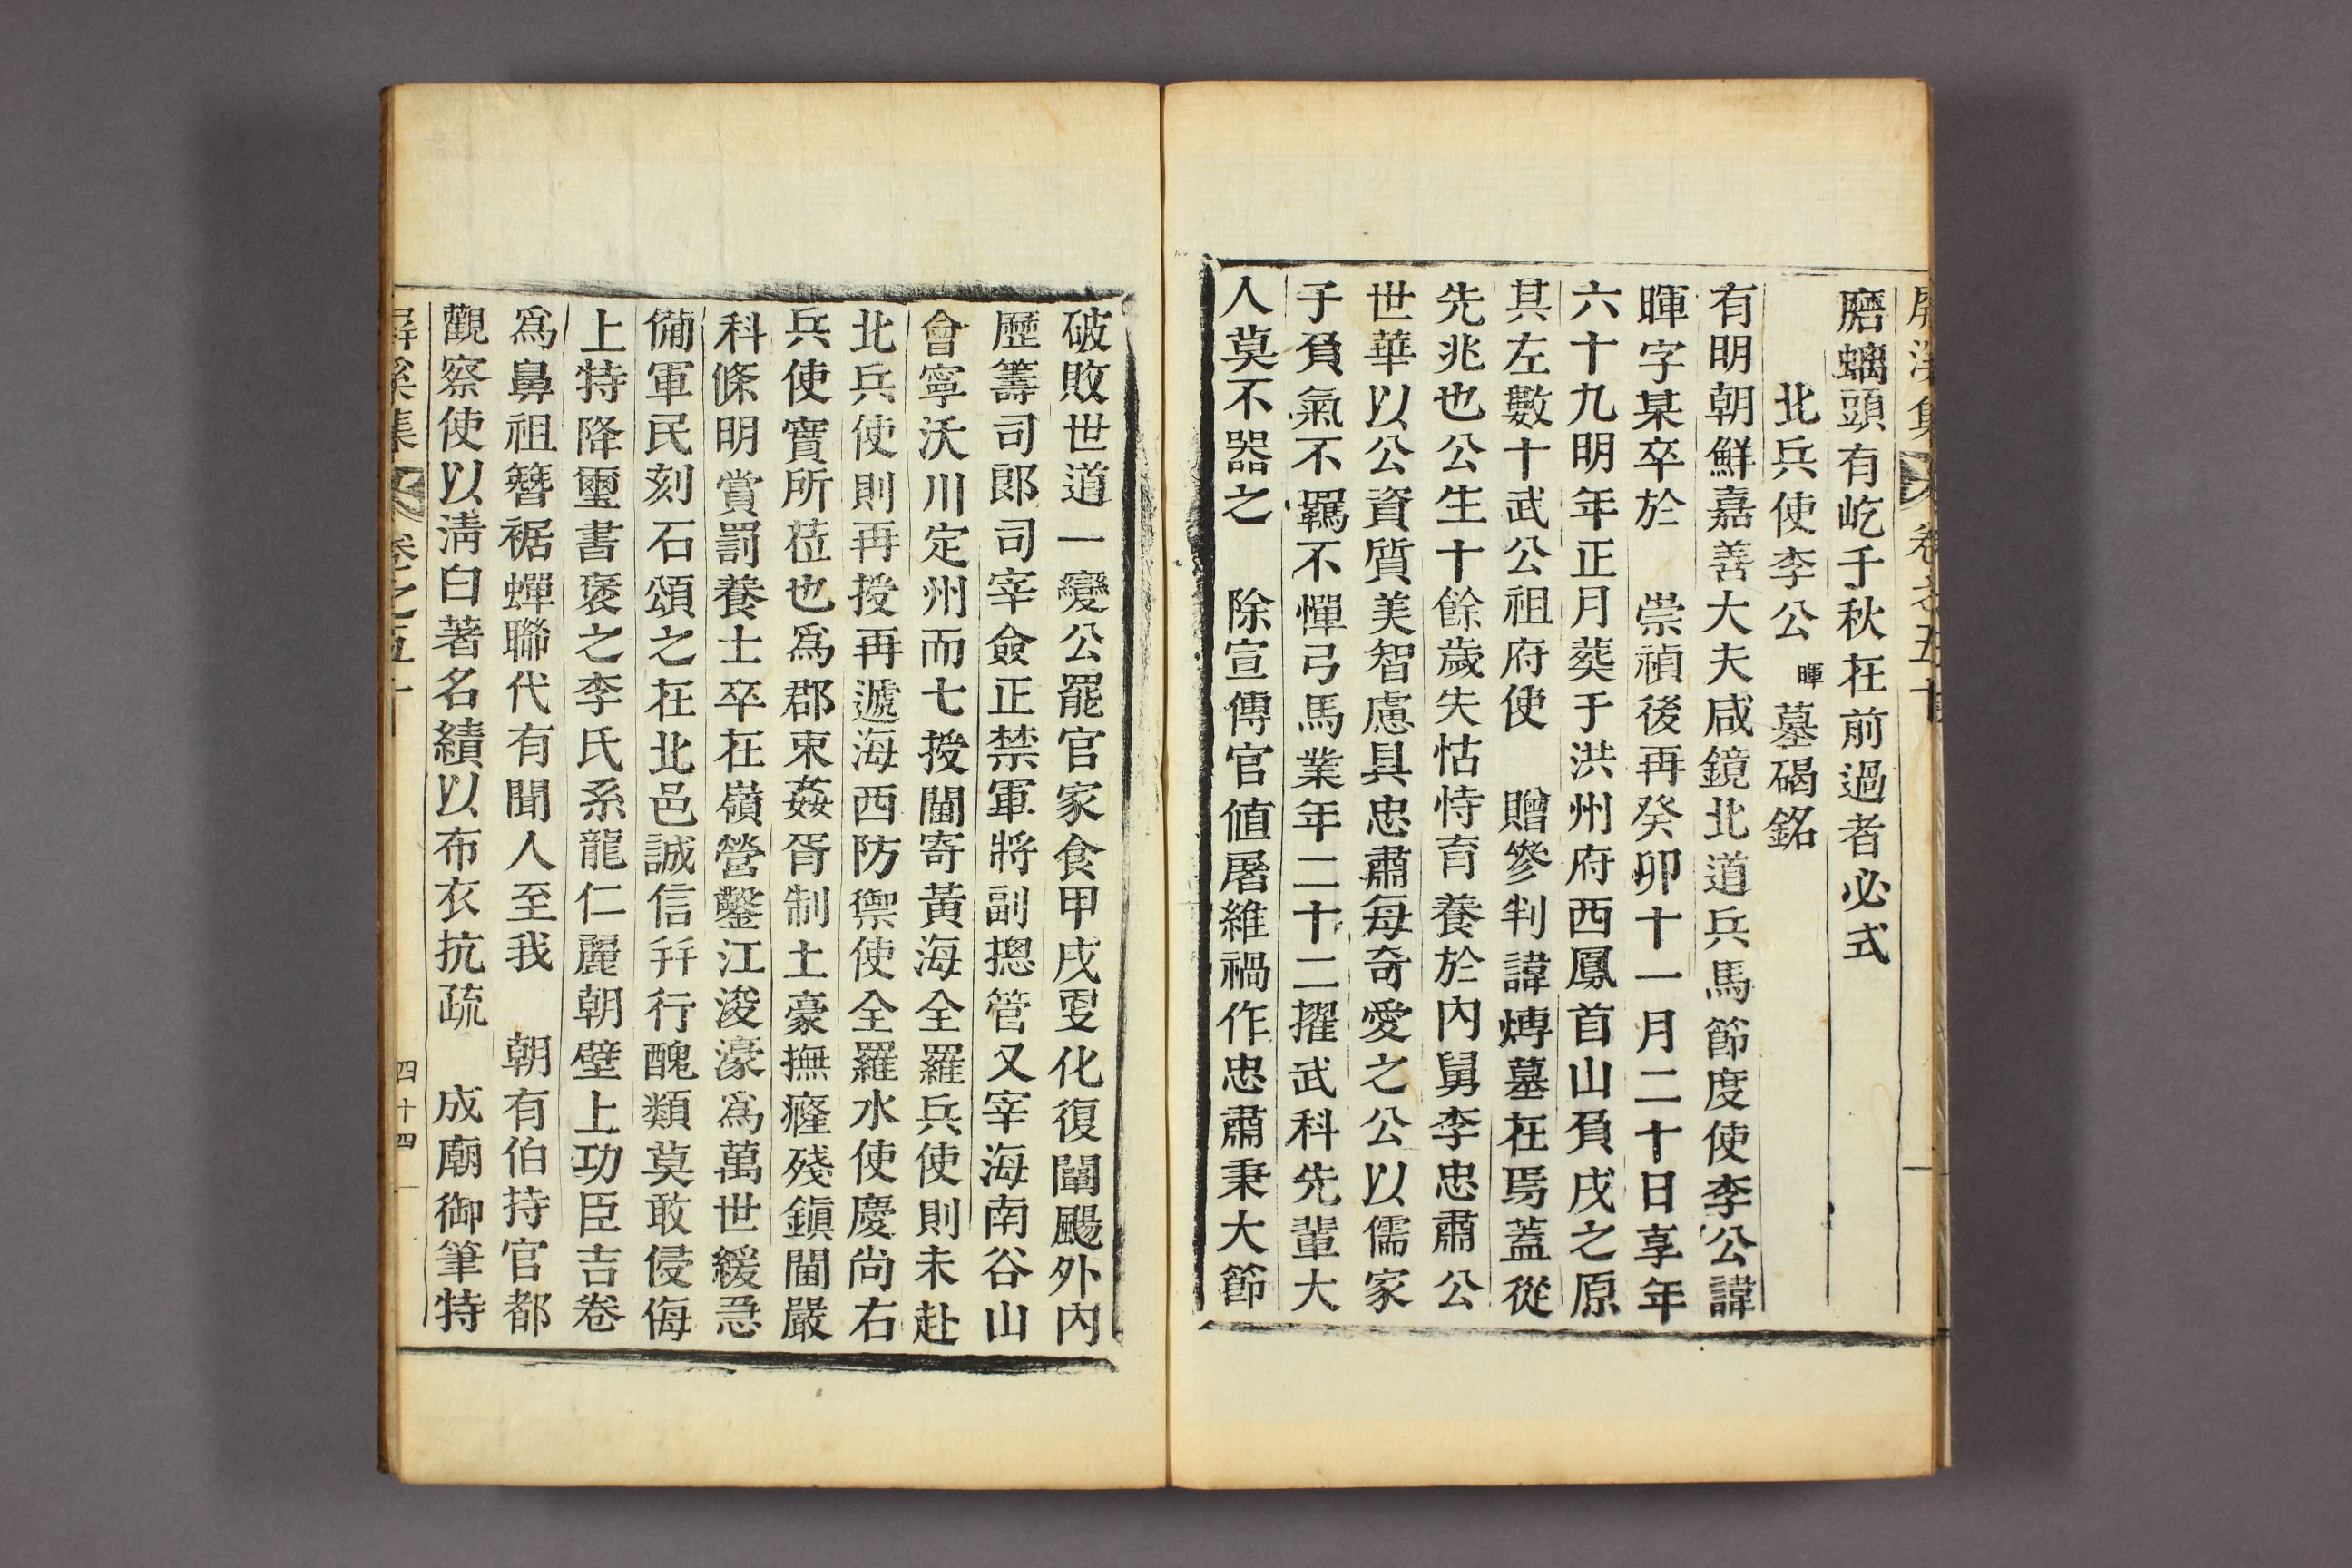 屛溪集 卷之五十
磨螭頭有屹千秋在前過者必式
北兵使李公暉墓碣銘
有明朝鮮嘉善大夫咸鏡北道兵馬節度使李公諱
暉字某卒於 崇禎後再癸卯十一月二十日享年
六十九明年正月葬于洪州府西鳳首山負戌之原
其左數十武公祖府使 贈參判諱煿墓在焉蓋從
先兆也公生十餘歲失怙恃育養於內舅李忠肅公
世華以公資質美智慮具忠肅每奇愛之公以儒家
子負氣不羈不憚弓馬業年二十二擢武科先輩大
人莫不器之 除宣傳官値屠維禍作忠肅秉大節
破敗世道一變公罷官家食甲戌更化復闡颺外內
歷籌司郞司宰僉正禁軍將副摠管又宰海南谷山
會寧沃川定州而七授閫寄黃海全羅兵使則未赴
北兵使則再授再遞海西防禦使全羅水使慶尙右
兵使實所莅也爲郡束姦胥制土豪撫癃殘鎭閫嚴
科條明賞罰養士卒在嶺營鑿江浚濠爲萬世緩急
備軍民刻石頌之在北邑誠信幷行醜類莫敢侵侮
上特降璽書褒之李氏系龍仁麗朝壁上功臣吉卷
爲鼻祖簪裾蟬聯代有聞人至我 朝有伯持官都
觀察使以淸白著名績以布衣抗疏 成廟御筆特
屛溪集 卷之五十 四十四